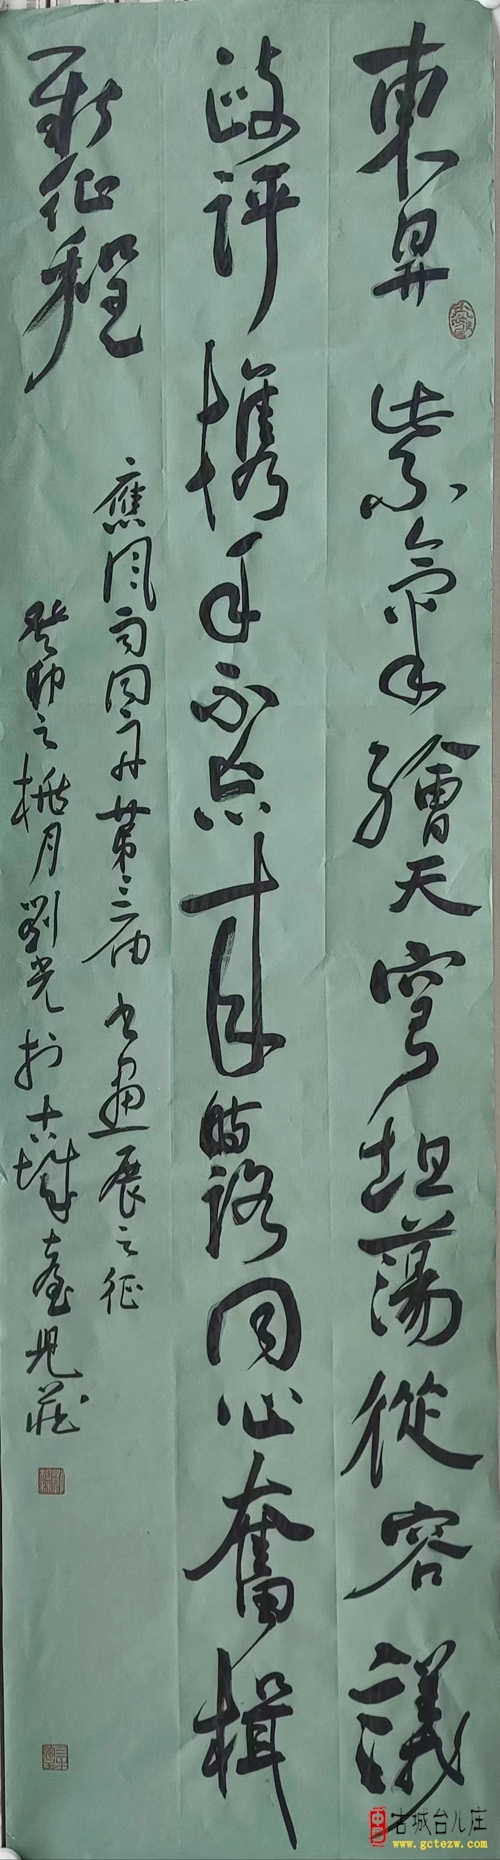 東昇紫氣繪天穹坦蕩從容議
政評携手不忘來時路同心奮楫
新征程
應風雨同舟第三届書畫展之征
癸卯之桃月劉光於古城臺兒莊
古城台儿庄
www.gctezw.com